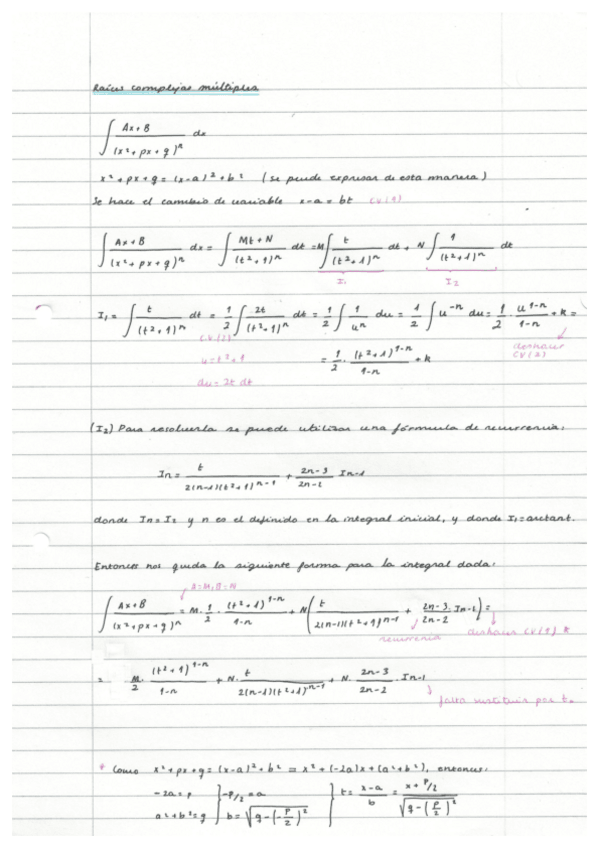 Raíces complejas múltiples
∫ (Ax+B)/(x²+px+q)ⁿ dx
x²+px+q = (x-a)²+b² (se puede expresar de esta manera)
Se hace el cambio de variable x-a = bt CV(1)
∫ (Ax+B)/(x²+px+q)ⁿ dx = ∫ (Mt+N)/(t²+1)ⁿ dt = M∫ t/(t²+1)ⁿ dt + N∫ 1/(t²+1)ⁿ dt
I₁ I₂
I₁ = ∫ t/(t²+1)ⁿ dt = 1/2 ∫ 2t/(t²+1)ⁿ dt = 1/2 ∫ 1/uⁿ du = 1/2 ∫ u⁻ⁿ du = 1/2 · u¹⁻ⁿ/(1-n) + k =
CV(2)
u = t²+1
du = 2t dt
deshacer CV(2)
= 1/2 · (t²+1)¹⁻ⁿ/(1-n) + k
(I₂) Para resolverla se puede utilizar una fórmula de recurrencia:
In = t/(2(n-1)(t²+1)ⁿ⁻¹) + (2n-3)/(2n-2) In-1
donde In = I₂ y n es el definido en la integral inicial, y donde I₁ = arctant.
Entonces nos queda la siguiente forma para la integral dada:
A=M, B=N
∫ (Ax+B)/(x²+px+q)ⁿ = M · 1/2 · (t²+1)¹⁻ⁿ/(1-n) + N(t/(2(n-1)(t²+1)ⁿ⁻¹) + (2n-3)/(2n-2) · In-1) =
recurrencia deshacer CV(1) *
= M/2 · (t²+1)¹⁻ⁿ/(1-n) + N · t/(2(n-1)(t²+1)ⁿ⁻¹) + N · (2n-3)/(2n-2) · In-1
falta sustituir por t.
* Como x²+px+q = (x-a)²+b² = x²+(-2a)x+(a²+b²), entonces:
-2a = p } -p/2 = a } t = (x-a)/b = (x+p/2)/√(q-(p/2)²)
a²+b² = q } b = √(q-(-p/2)²)